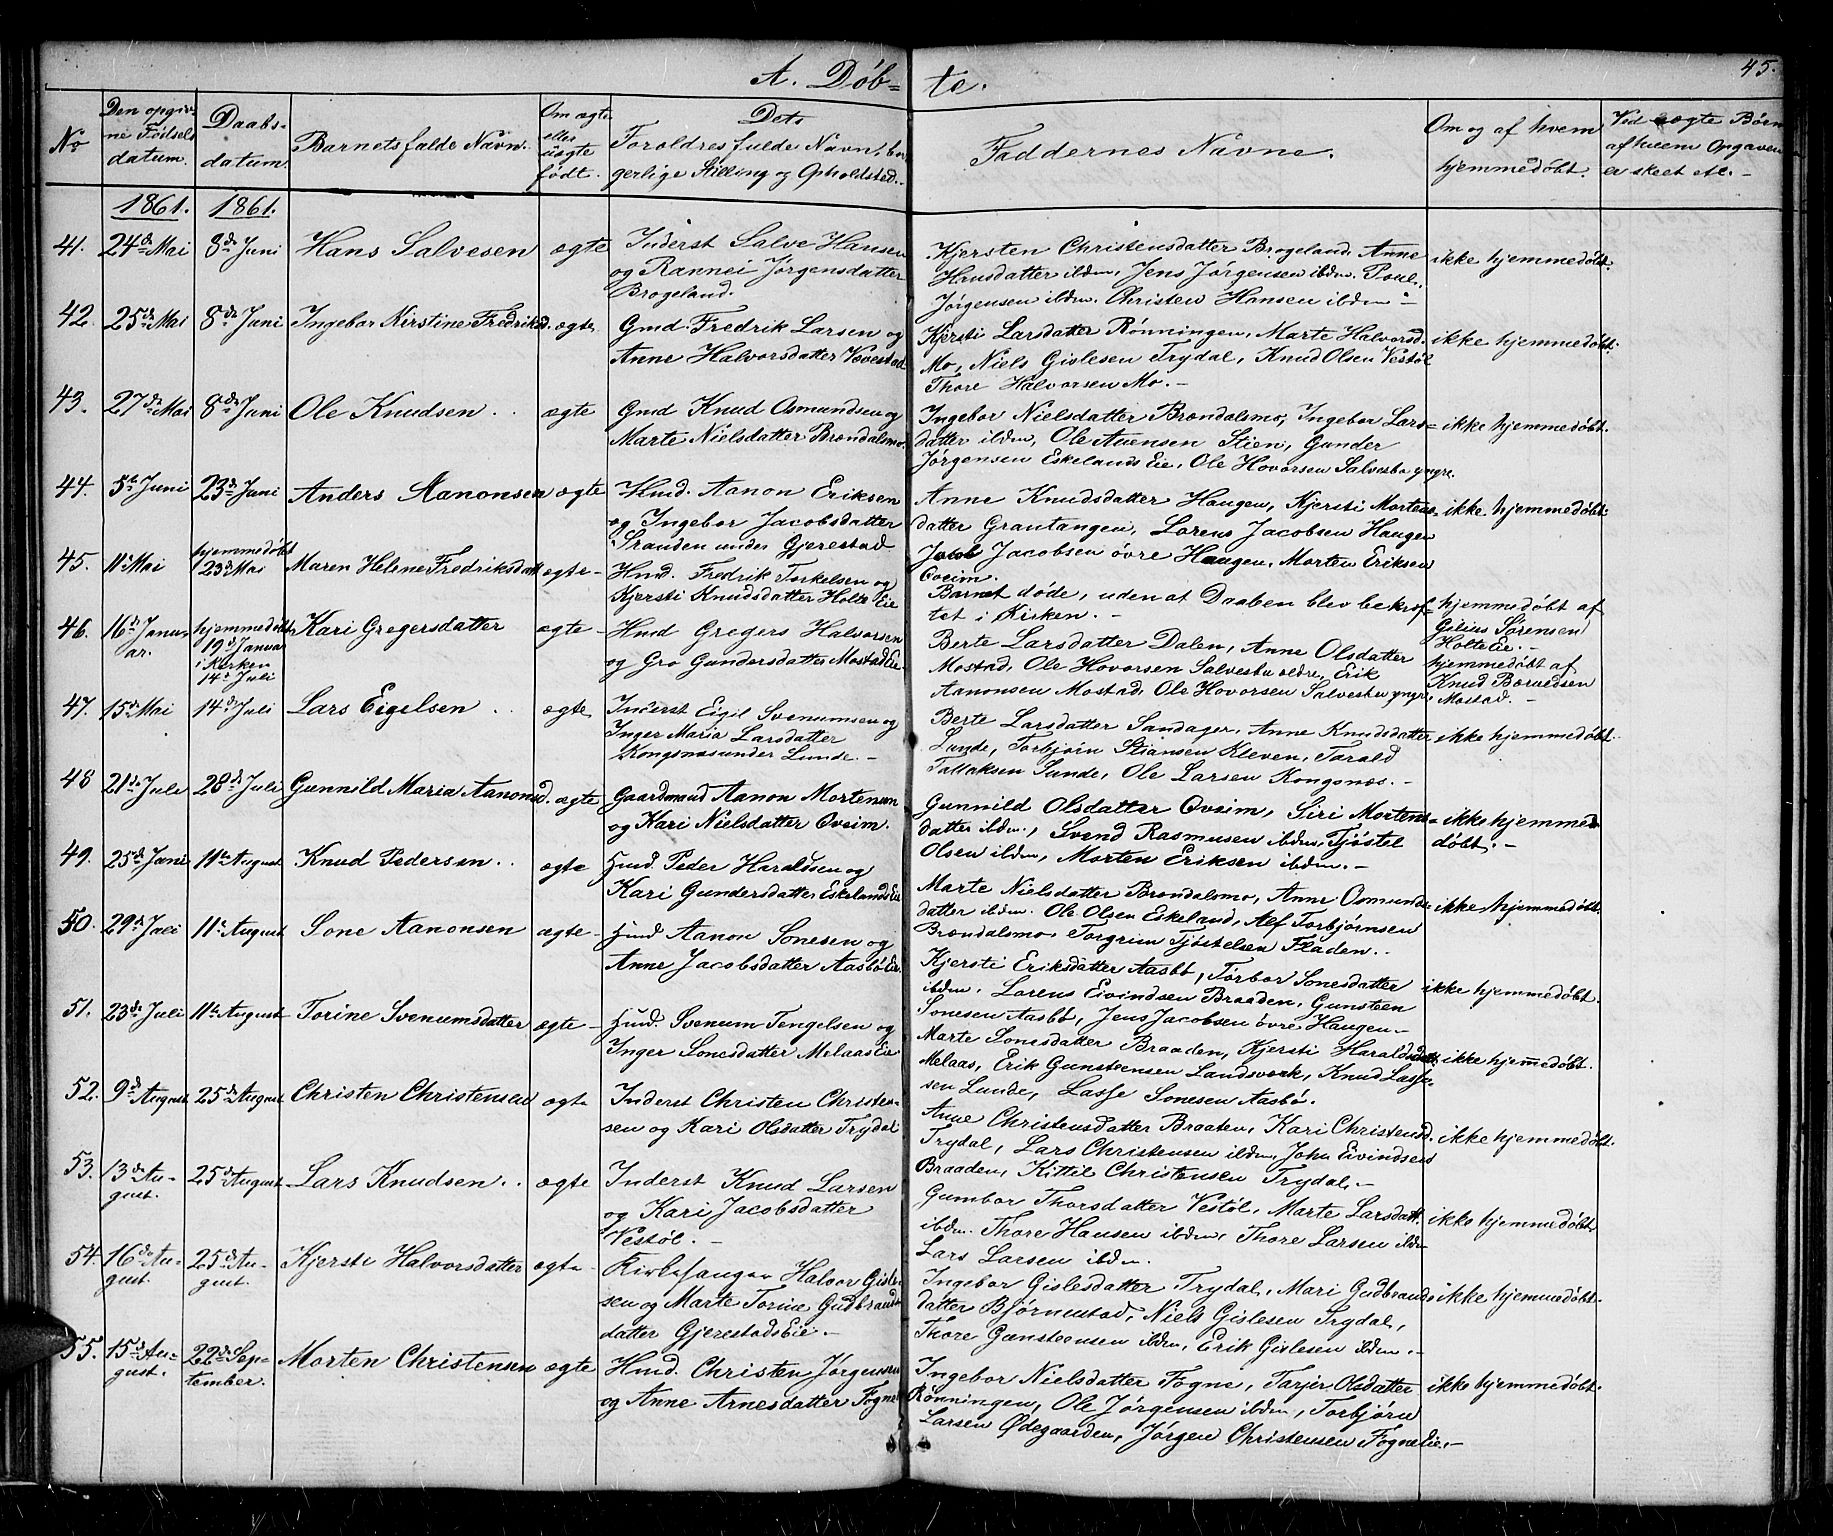 A. Døb- te. 45.
No
Den opgiv-
ne Fødsels
datum.
Daabs-
datum.
Barnets fulde Navn.
Om ægte
eller
uægte
født.
Dets
Foroldres fulde Navn, bor
gerlige Stilling og Opholdsted.
Faddernes Navne.
Om og af hvem
hjemmedøbt.
Ved uægte Børn
af hvem Opgaven
er skeet etc. -
1861. 1861.
41. 24de Mai 8de Juni Hans Salvesen ægte
Inderst Salve Hansen
og Rannei Jørgensdatter
Brogeland.
Kjersten Christensdatter Brogeland, Anne
Hansdatter ibdm, Jens Jørgensen ibdm. Poul
Jørgensen ibdm. Christen Hansen ibdm -
ikke hjemmedøbt.
42. 25de Mai 8de Juni Ingebor Kirstine Fredriksd. ægte
Gmd. Fredrik Larsen og
Anne Halvorsdatter Vevestad
Kjersti Larsdatter Rønningen, Marte Halvorsd.
Mo, Niels Gislesen Trydal, Knud Olsen Vestøl
Thore Halvorsen Mo. -
ikke hjemmedøbt.
43. 27de Mai 8de Juni Ole Knudsen ægte
Gmd Knud Osmundsen og
Marte Nielsdatter Brøndalsmo.
Ingebor Nielsdatter Brøndalsmo, Ingebor Lars-
datter ibdm, Ole Auensen Stien, Gunder
Jørgensen Eskelands Eie, Ole Hovorsen Salvesbo yngre.
ikke hjemmedøbt.
44. 5te Juni 23de Juni Anders Aanonsen ægte
Hmd. Aanon Eriksen
og Ingebor Jacobsdatter
Sranden under Gjerestad
Anne Knudsdatter Haugen, Kjersti Mortens-
datter Grautangen, Lorens Jacobsen Haugen
Jacob Jacobsen øvre Haugen, Morten Eriksen
Oveim.
ikke hjemmedøbt.
45. 11te Mai hjemmedøbt
23de Mai Maren Helene Fredriksdatt ægte -
Hmd. Fredrik Torkelsen og
Kjersti Knudsdatter Holte Eie
Barnet døde, uden at Daaben blev bekræf-
tet i Kirken. -
hjemmedøbt af
Gilius Sørensen
Holte Eie. -
46. 16de Janu-
ar. hjemmedøbt
19de Januar
i Kirken
14de Juli Kari Gregersdatter ægte -
Hmd Gregers Halvorsen
og Gro Gundersdatter Mostad Eie
Berte Larsdatter Dalen, Anne Olsdatter
Mostad, Ole Hovorsen Salvesbo eldre, Erik
Aanonsen Mostad, Ole Hovorsen Salvesbo yngre.
hjemmedøbt af
Knud Boruldsen
Mostad. -
47. 15de Mai 14de Juli Lars Eigilsen ægte
Inderst Eigil Svenumsen og
Inger Maria Larsdatter
Kongsnæs under Lunde. -
Berte Larsdatter Sandager, Anne Knudsdatter
Lunde, Torbjørn Stiansen Kleven, Tarald
Tallaksen Lunde, Ole Larsen Kongsnæs. -
ikke hjemmedøbt.
48 21de Juli 28de Juli Gunnild Maria Aanonsd. ægte
Gaardmand Aanon Mortensen
og Kari Nielsdatter Oveim.
Gunnild Olsdatter Oveim, Siri Mortens-
datter ibdm., Svend Rasmusen ibdm, Tjøstel
Olsen ibdm, Morten Eriksen ibdm. -
ikke hjemme
døbt. -
49. 25de Juni 11te August Knud Pedersen ægte
Hmd. Peder Haraldsen og
Kari Gundersdatter Eskelands Eie
Marte Nielsdatter Brøndalsmo, Anne Osmunds-
datter ibdm. Ole Olsen Eskeland, Alf Torbjørnsen
Brøndalsmo, Torgrim Tjøstelsen Fladen. -
ikke hjemmedøbt.
50. 29de Juli 11te August Sone Aanonsen ægte -
Hmd Aanon Sonesen og
Anne Jacobsdatter Aasbø Eie
Kjersti Eriksdatter Aasbø, Torbor Sonesdatter
ibdm. Lorens Eivindsen Braaden, Gunsteen
Sonesen Aasbø, Jens Jacobsen øvre Haugen. -
ikke hjemmedøbt.
51. 23de Juli 11te August Torine Svenumsdatter ægte -
Hmd. Svenum Tengelsen og
Inger Sonesdatter Melaas Eie
Marte Sonesdatter Braaden, Kjersti Haraldsdatt.
Melaas, Erik Gunsteensen Landsverk, Knud Lasse-
sen Lunde, Lasse Sonesen Aasbø.
ikke hjemmedøbt.
52. 9de August 25de August Christen Christensen ægte
Inderst Christen Christen-
sen og Kari Olsdatter Trydal
Anne Christensdatter Braaten, Kari Christensd.
Trydal, Lars Christensen ibdm, John Eivindsen
Braaden, Kittil Christensen Trydal. -
ikke hjemmedøbt.
53. 13de Au-
gust. 25de August Lars Knudsen ægte
Inderst Knud Larsen
og Kari Jacobsdatter
Vestøl. -
Gumbor Thorsdatter Vestøl, Marte Larsdatt.
ibdm. Thore Hansen ibdm, Thore Larsen ibdm
Lars Larsen ibdm.
ikke hjemmedøbt
54. 16de Au-
gust. 25de Au-
gust. Kjersti Halvorsdatter ægte -
Kirkesanger Halvor Gisle-
sen og Marte Torine Gudbrands
datter Gjerestads Eie. -
Ingebor Gislesdatter Trydal, Mari Gudbrands
datter Bjørnestad, Niels Gislesen Trydal,
Thore Gunsteensen ibdm, Erik Gislesen ibdm. -
ikke hjemmedøbt.
55. 15de Au-
gust. 22de Sep-
tember. Morten Christensen ægte
Hmd. Christen Jørgensen
og Anne Arnesdatter Fogne
Ingebor Nielsdatter Fogne, Tarjer Olsdatter
Rønningen, Ole Jørgensen ibdm, Torbjørn
Larsen Ødegaarden, Jørgen Christensen Fogne Eie. -
ikke hjemmedøbt.